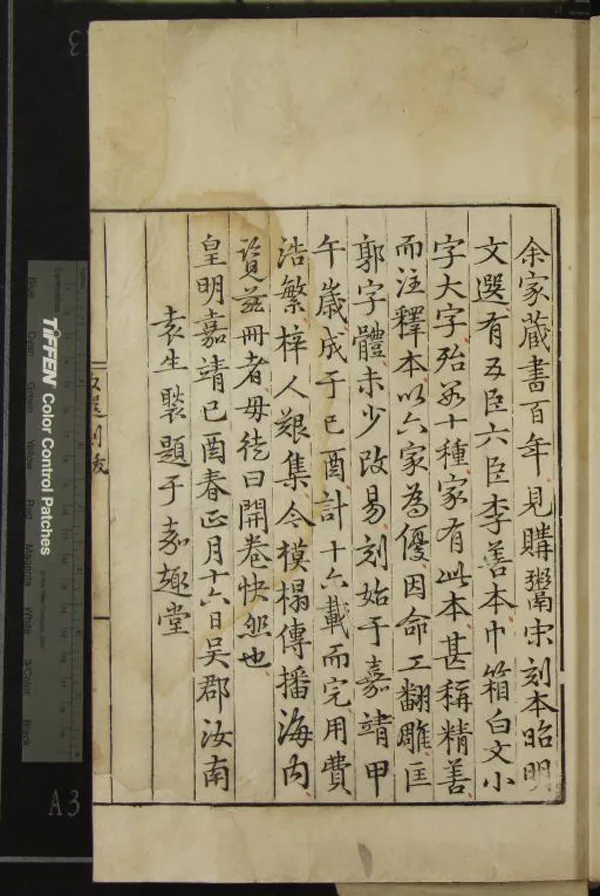 余家藏書百年見購鬻宋刻本昭明
文選有五臣六臣李善本巾箱白文小
字大字殆數十種家有此本甚稱精善
而注釋本以六家為優因命工翻雕匡
郭字體未少改易刻始于嘉靖甲
午歲成于己酉計十六載而完用費
浩繁梓人艱集今模搨傳播海內
覽茲冊者毋徒曰開卷快然也
皇明嘉靖己酉春正月十六日吳郡汝南
袁生褧題于嘉趣堂
TIFFEN Color Control Patches
Blue
Cyan
Green
Yellow
Red
Magenta
White
3/Color
Black
A3